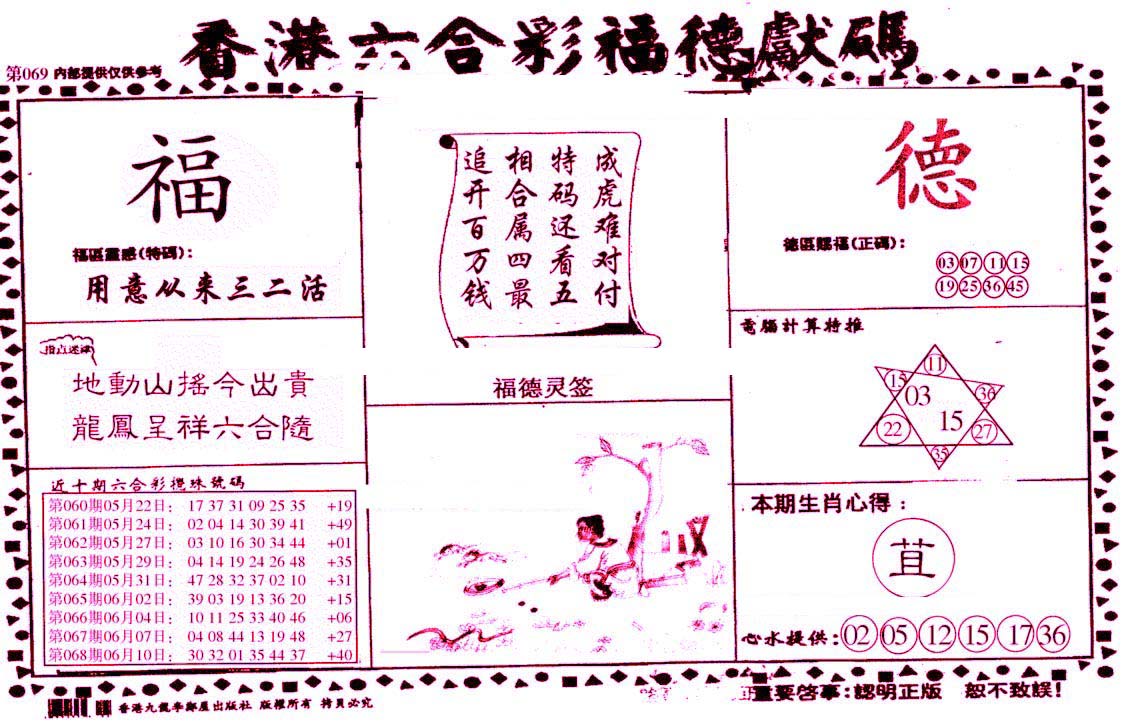 香港六合彩福德獻碼
第069 内部提供仅供参考
福
福區靈感(特碼):
用意从来三二活
指点迷津
地動山搖今出貴
龍鳳呈祥六合隨
近十期六合彩攪珠號碼
第060期05月22日: 17 37 31 09 25 35 +19
第061期05月24日: 02 04 14 30 39 41 +49
第062期05月27日: 03 10 16 30 34 44 +01
第063期05月29日: 04 14 19 24 26 48 +35
第064期05月31日: 47 28 32 37 02 10 +31
第065期06月02日: 39 03 19 13 36 20 +15
第066期06月04日: 10 11 25 33 40 46 +06
第067期06月07日: 04 08 44 13 19 48 +27
第068期06月10日: 30 32 01 35 44 37 +40
成虎难对付
特码还看五
相合属四最
追开百万钱
福德灵签
德
德區賜福(正碼):
03 07 11 15
19 25 36 45
電腦計算特推
11
15 36
03
15
22 27
35
本期生肖心得:
苴
心水提供: 02 05 12 15 17 36
香港九龍李鄭屋出版社 版權所有 拷貝必究
重要啓事:認明正版 恕不致誤!